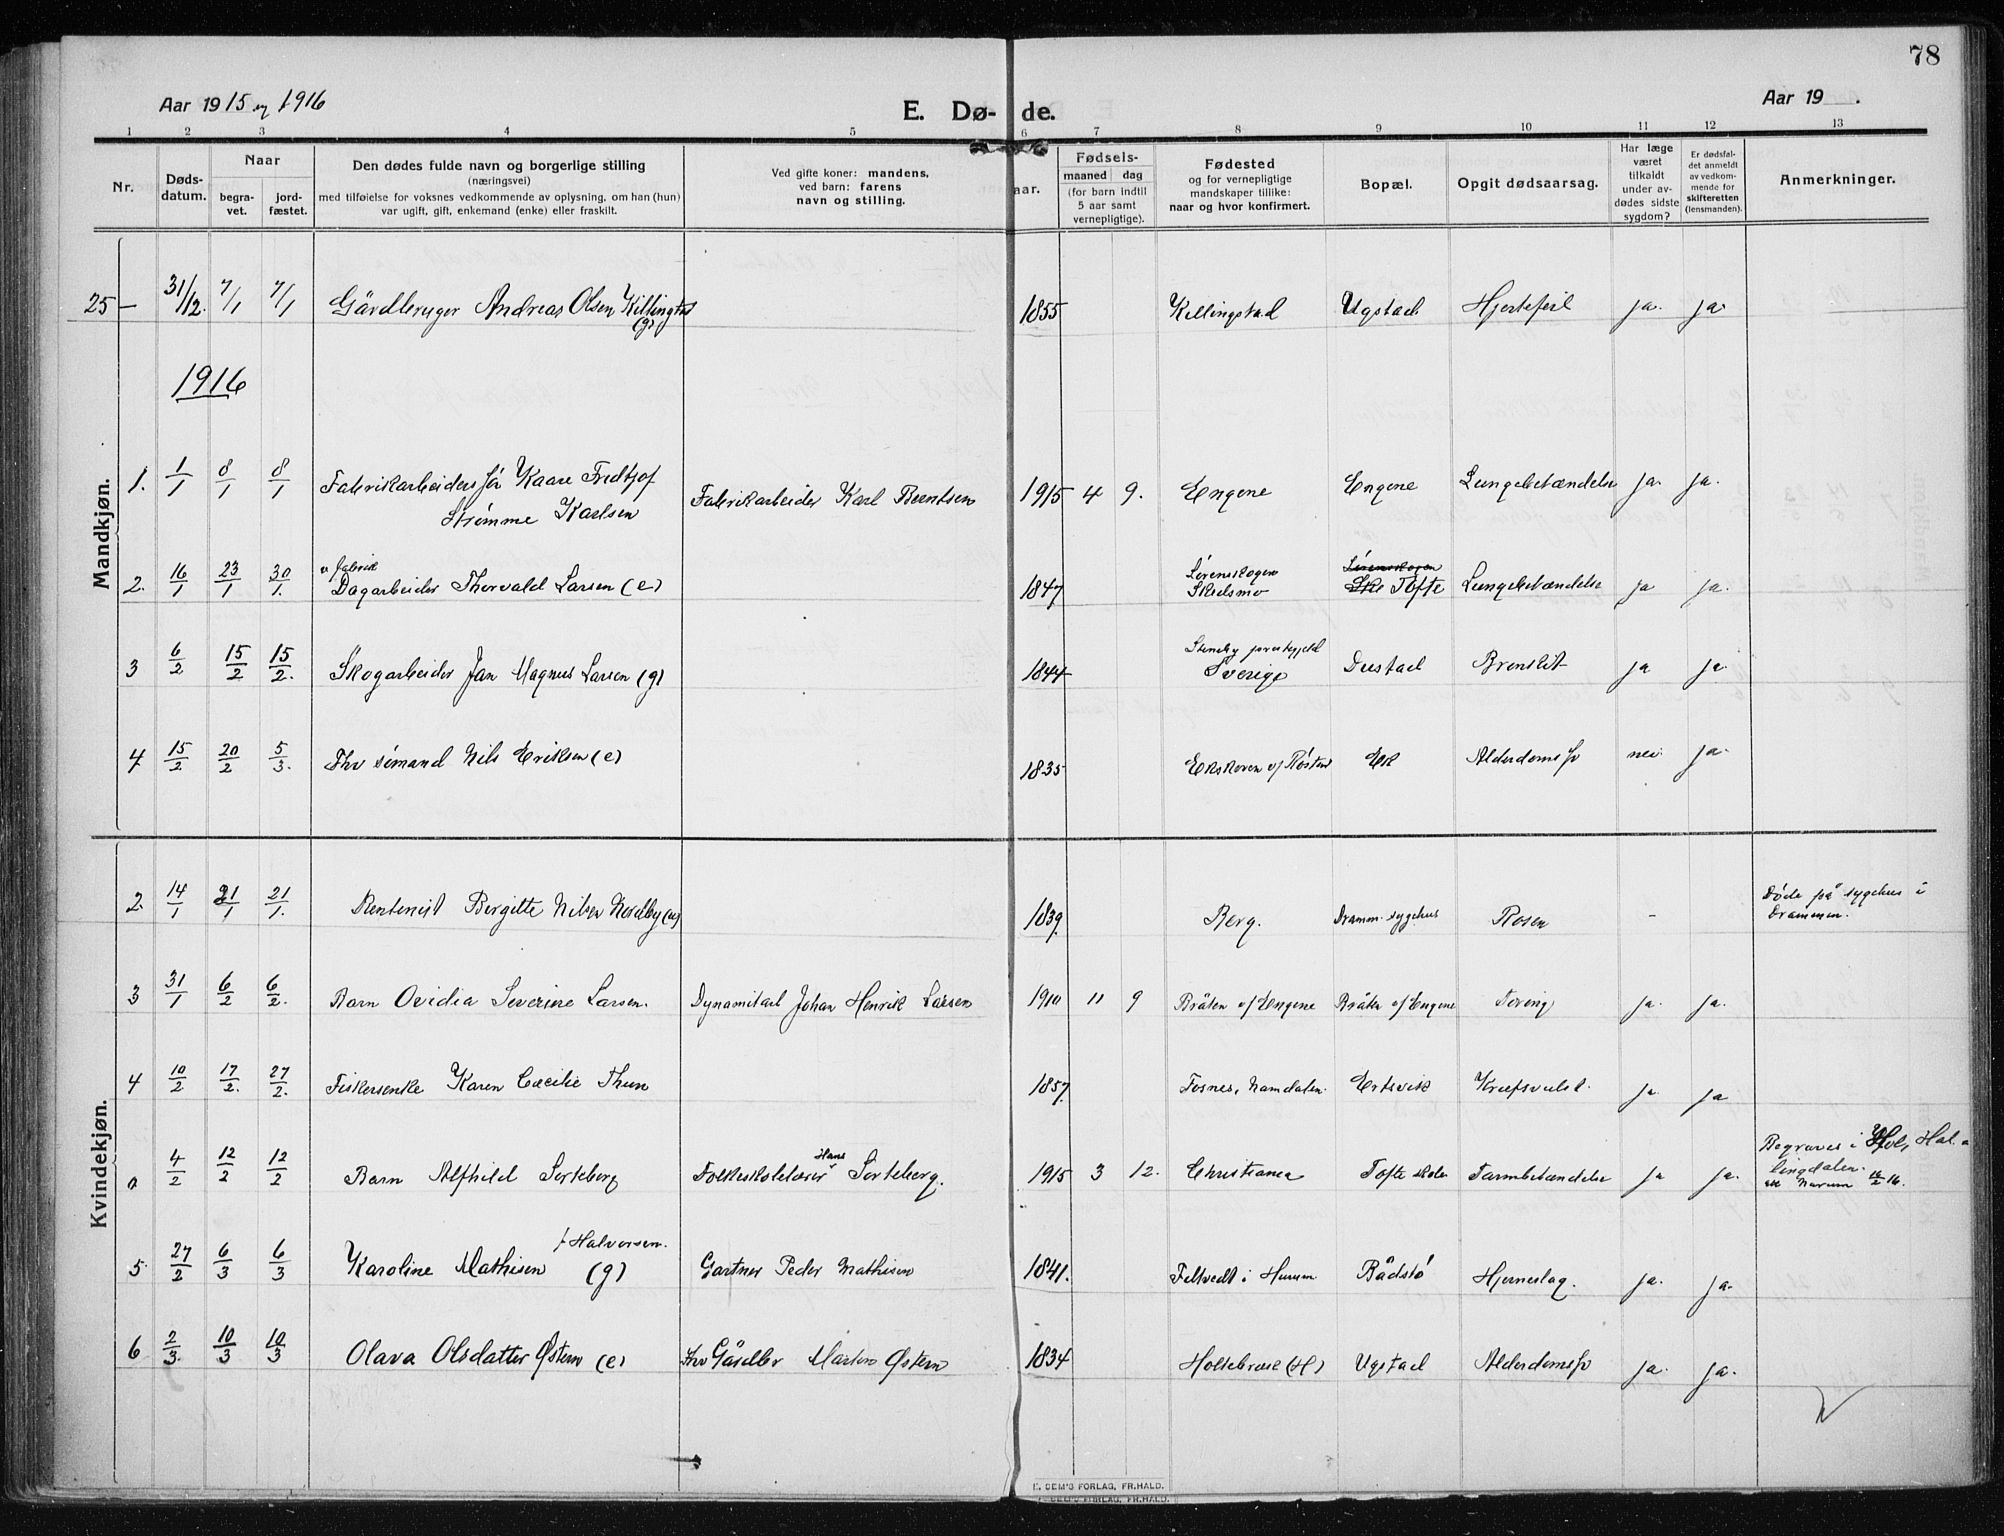 78
Aar 1915 og 1916
E. Dø- de.
Aar 19 .
1 2 3 4 5 6 7 8 9 10 11 12 13
Nr.
Døds-
datum.
Naar
begra-
vet.
jord-
fæstet.
Den dødes fulde navn og borgerlige stilling
(næringsvei)
med tilføielse for voksnes vedkommende av oplysning, om han (hun)
var ugift, gift, enkemand (enke) eller fraskilt.
Ved gifte koner: mandens,
ved barn: farens
navn og stilling.
aar.
Fødsels-
maaned dag
(for barn indtil
5 aar samt
vernepligtige).
Fødested
og for vernepligtige
mandskaper tillike:
naar og hvor konfirmert.
Bopæl.
Opgit dødsaarsag.
Har læge
været
tilkaldt
under av-
dødes sidste
sygdom?
Er dødsfal-
det anmeldt
av vedkom-
mende for
skifteretten
(lensmanden).
Anmerkninger.
25 — 31/12. 7/1 7/1 Gårdbruger Andreas Olsen Killingstad (g) 1855 Killingstad Ugstad Hjertefeil ja. ja
1916
Mandkjøn.
1. 1/1 8/1 8/1 Fabrikarbeiders søn Kaare Fredtjof
Strømme Karlsen
Fabrikarbeider Karl Berntsen 1915 4 9. Engene Engene Lungebetændelse ja. ja.
2. 16/1 23/1 30/1. v fabrik
Dagarbeider Thorvald Larsen (e) 1847 Sørenskogen
Skedsmo
Sørenskogen
Ske Tofte Lungebetændelse ja ja.
3 6/2 15/2 15/2. Skogarbeider Jan Magnus Larsen (g) 1844 Stenby prestegjeld
Sverige Dustad Bronkit ja ja.
4 15/2 20/2 5/3. Fhv sømand Nils Eriksen (e) 1835 Ekskoven v/ Røsten Ek Alderdomssv nei. ja.
Kvindekjøn.
2. 14/1 21/1 21/1. Rentenist Bergitte Nilsen Nordby (u) 1839 Berg. Dramm. sygehus Rosen - Døde på sygehus i
Drammen.
3 31/1 6/2 6/2. Barn Ovidia Severine Larsen. Dynamitarb Johan Henrik Larsen 1910 11 9 Bråten v/Engene Bråten v/Engene Tæring ja. ja.
4 10/2 17/2. 27/2. Fiskersenke Karen Cæcilie Thun 1857. Fosnes, Namdalen. Ertsvik Kræftsvulst. ja. ja
a 4/2 12/2 12/2 Barn Alfhild Sorteberg Folkeskolelærer Hans Sorteberg. 1915 3 12. Christiania Tofte skole Tarmbetændelse ja ja. Begraves i Hol, Hal-
lingdalen.
12/2 16.
5. 27/2 6/3 6/3 Karoline Mathisen f. Halvorsen. (g) Gartner Peder Mathisen 1841. Feltvedt i Hurum Bådstø Hjerneslag. ja. ja.
6 2/3. 10/3 10/3 Olava Olsdatter Østern (e) Fhv Gårdbr Morten Østern 1834 Holtebræk (H) Ugstad Alderdomssv ja. ja.
E. SEM'S FORLAG, FR.HALD.